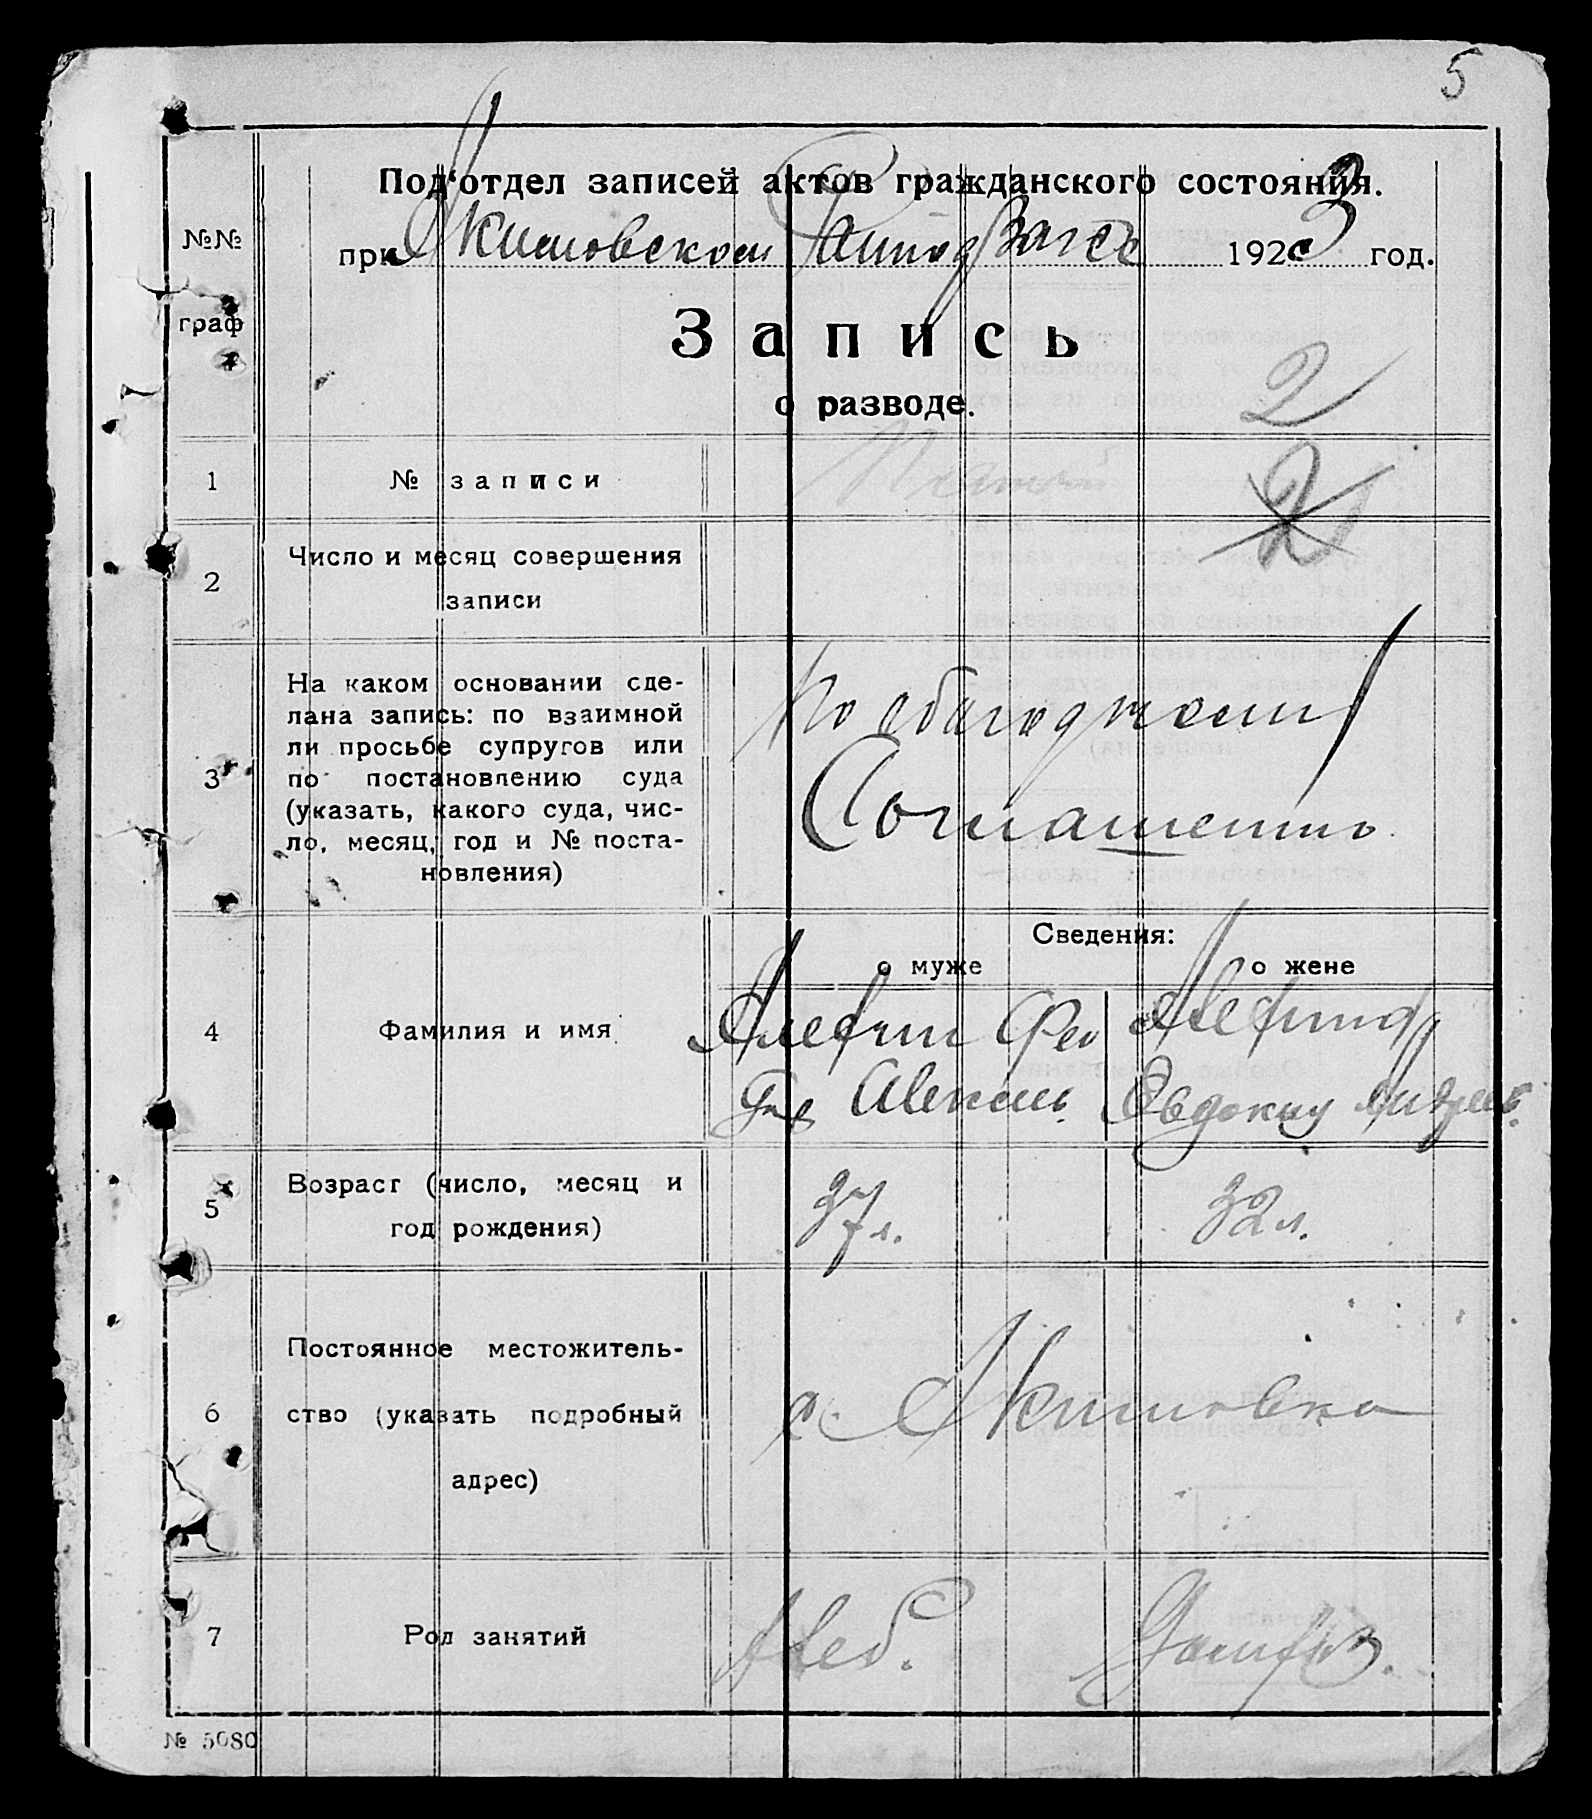 5
Под‘отдел записей актов гражданского состояния.
№№
при Акимовском 1923 год.
граф
Запись
о разводе.
2
1 № записи
2
2 Число и месяц совершения
записи
3 На каком основании сде-
лана запись: по взаимной
ли просьбе супругов или
по постановлению суда
(указать, какого суда, чис-
ло, месяц, год и № поста-
новления)
По обоюдном
Соглашению
Сведения:
о муже о жене
4 Фамилия и имя
Евдокия
5 Возраст (число, месяц и
год рождения)
37 л. 32 л.
6 Постоянное местожитель-
ство (указать подробный
адрес)
с. Акимовка
7 Род занятий
Хлеб.
№ 5080